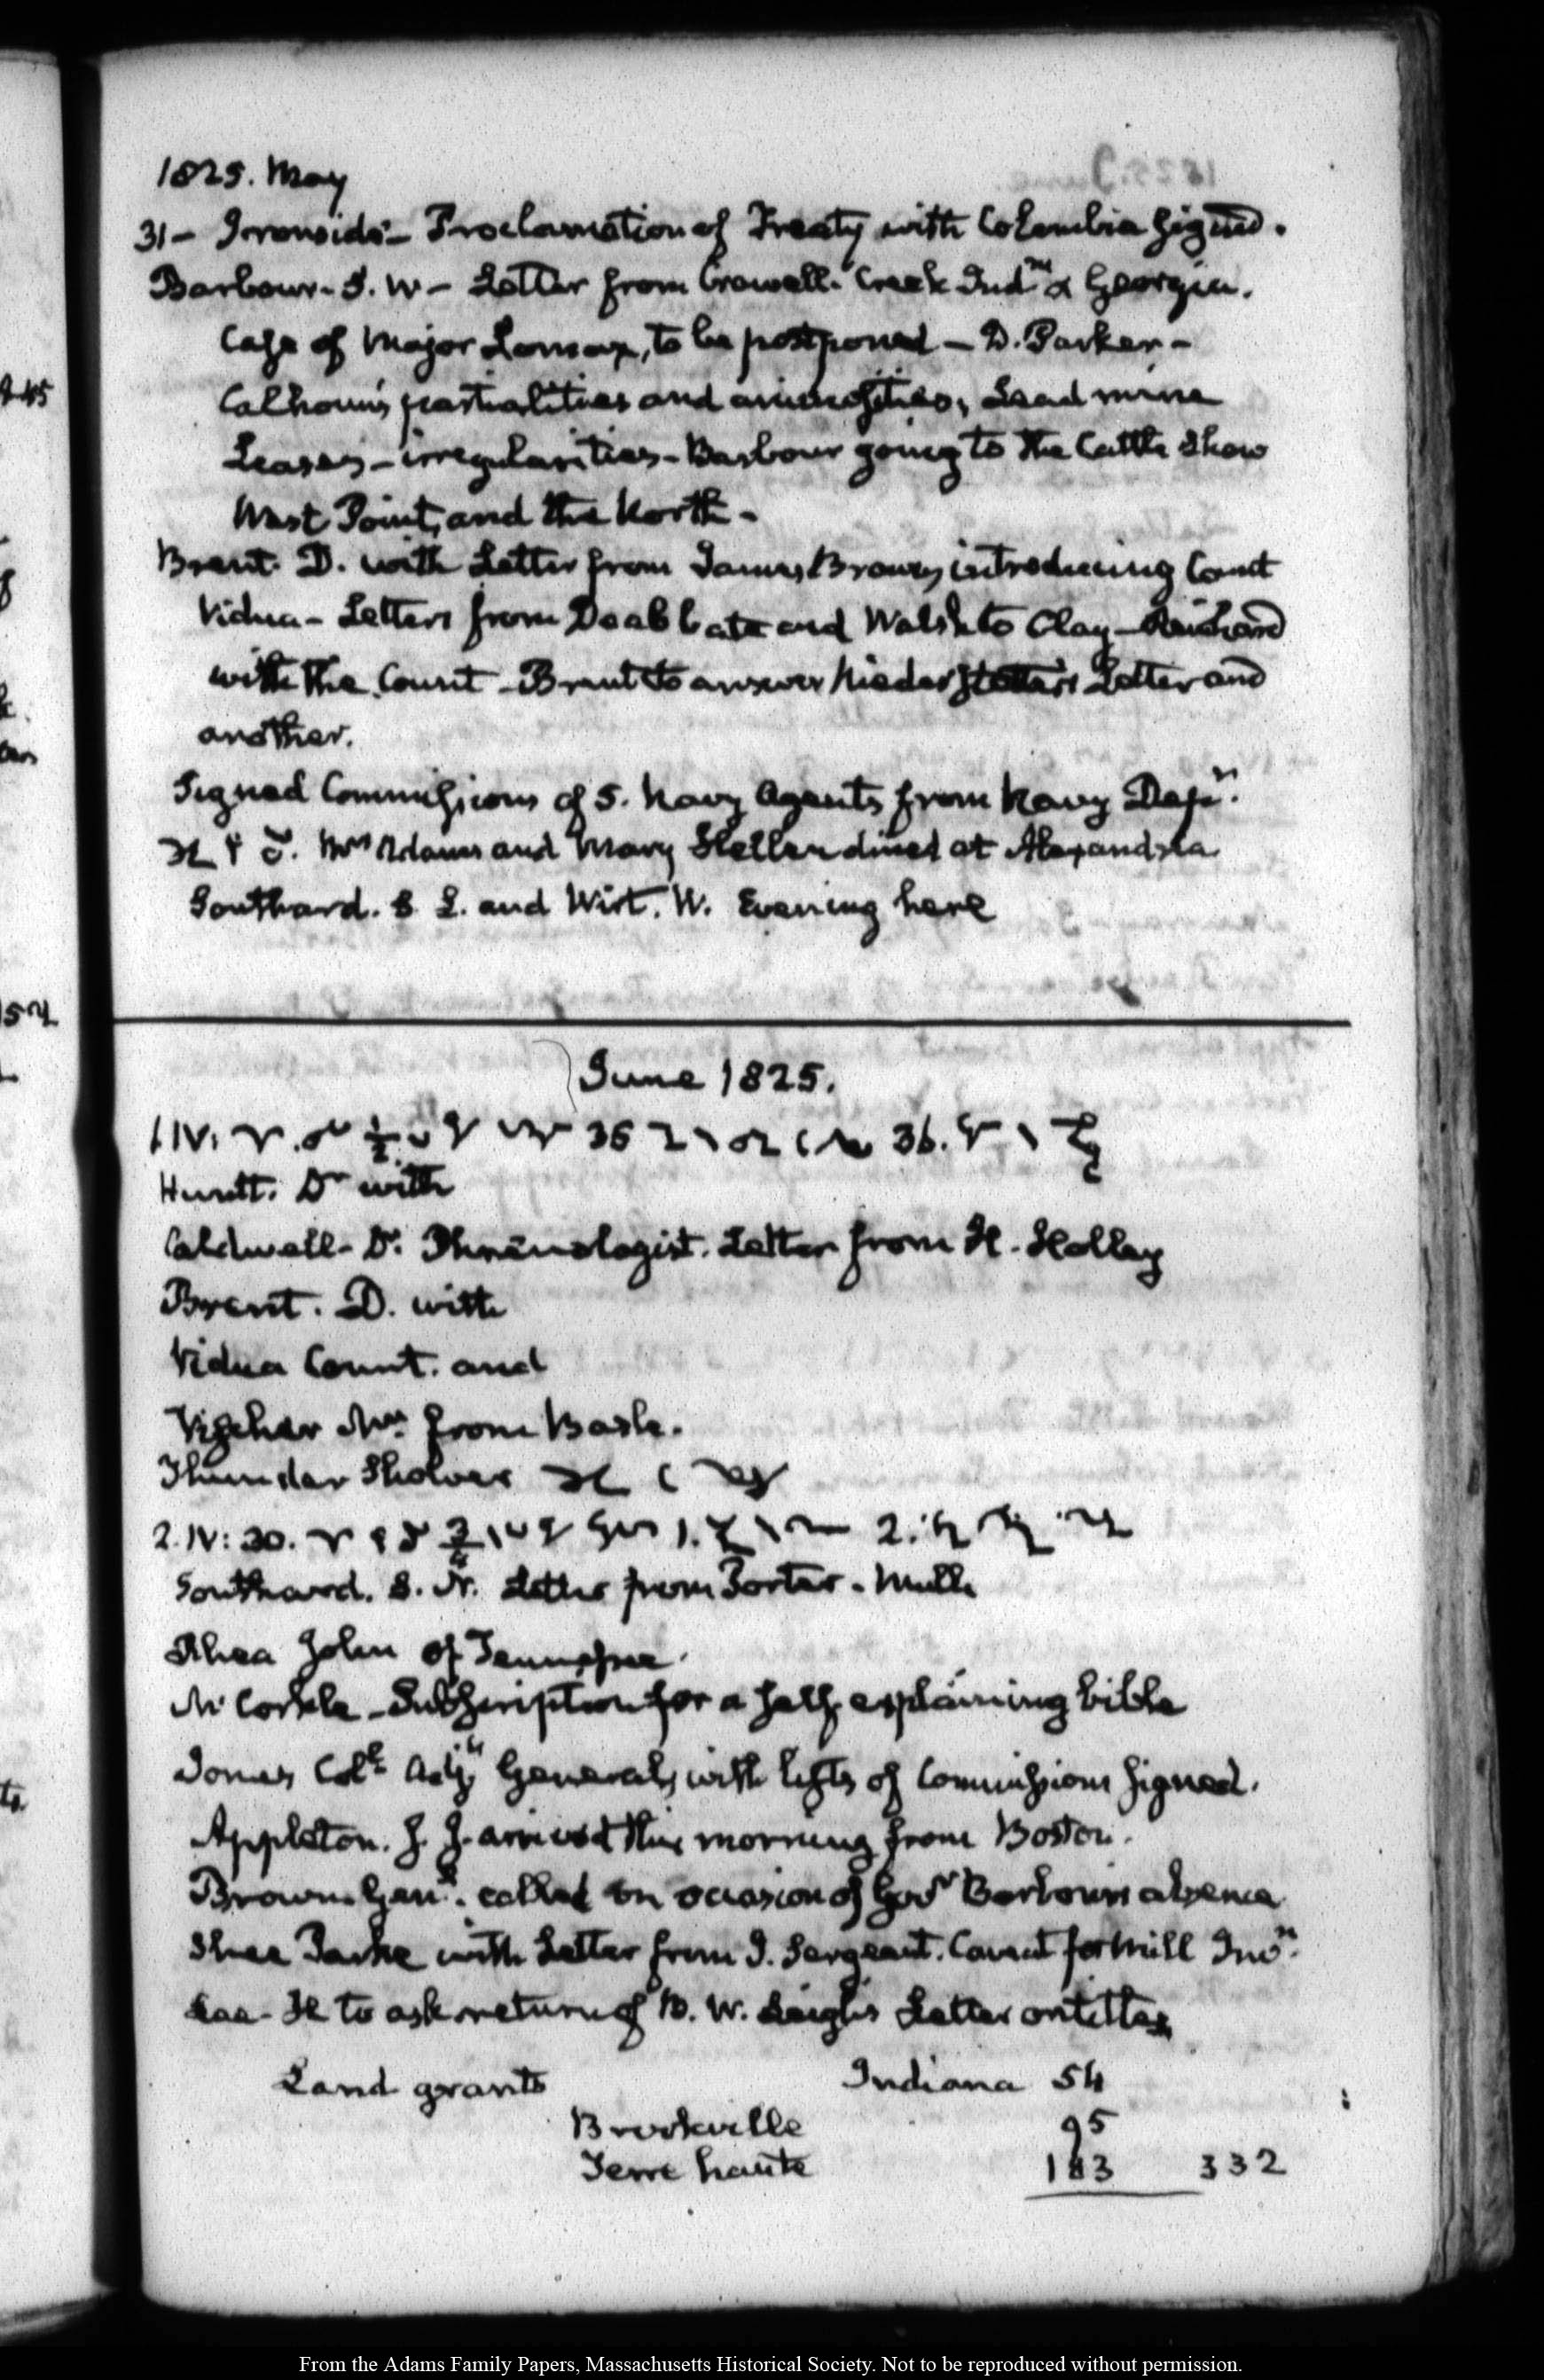 1825. May
31 - Ironside - Proclamation of Treaty with Colombia signed.
Barbour. S. W - Letter from Crowell. Creek Indns & Georgia.
Case of Major Lomax, to be postponed - D. Parker -
Calhoun's partialities and animosities, Lead mine
Leases - irregularities - Barbour going to the Cattle Show
West Point, and the North -
Brent. D. with Letter from James Brown, introducing Count
Vidua - Letters from and Walsh to Clay -
with the Count - Brent to answer Niederstetter's Letter and
another.
Signed Commissions of 5. Navy Agents from Navy Dept.
Mrs Adams and Mary Hellen dined at Alexandria
Southard. S. L. and Wirt. W. Evening here
June 1825.
1. IV.
Huntt. Dr with
Caldwell - Dr. Phrenologist. Letter from H. Holley
Brent. D. with
Vidua Count. and
Vischer Mr. from Basle.
Thunder Shower
2. IV: 30.
Southard. S. N. Letter from Porter - Mull
Rhea John of Tennessee.
McCorkle - Subscription for a self explaining bible
Jones Coll Adjt General, with lists of Commissions signed.
Appleton. J. J. arrived this morning from Boston.
Brown. Genl. called on occasion of Govr Barbour's absence
with Letter from J. Sergeant. Caveat for Mill
Lee - H to ask return of B. W. Leigh's Letter on titles
Land grants Indiana 54
Brookville 95
Terre haute 183 332
From the Adams Family Papers, Massachusetts Historical Society. Not to be reproduced without permission.